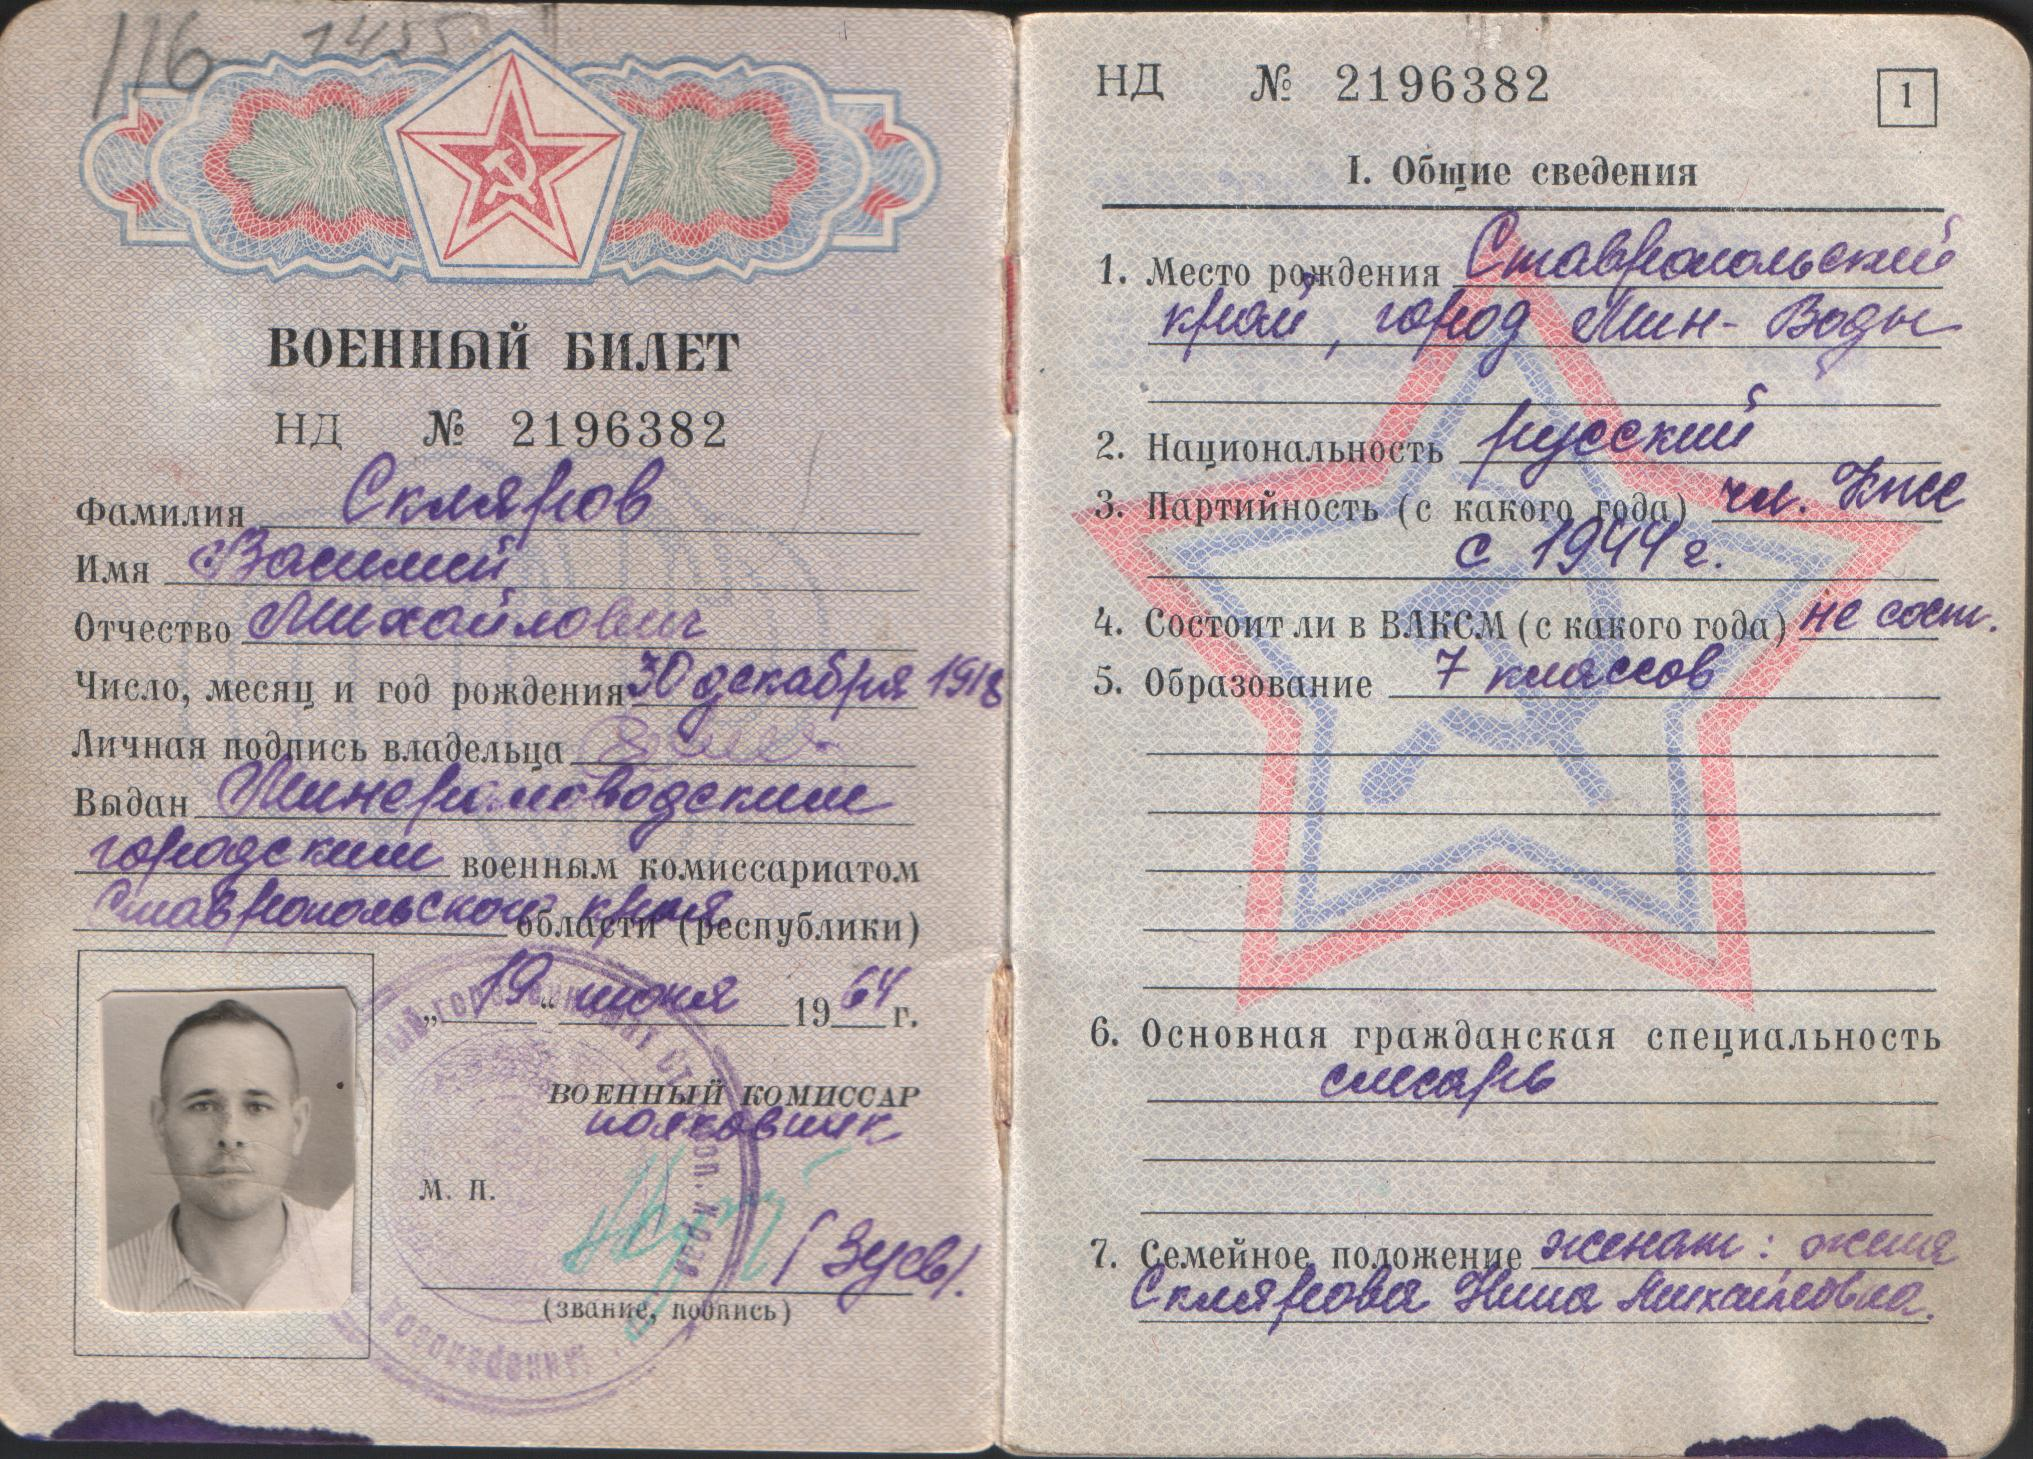 116 1455
ВОЕННЫЙ БИЛЕТ
НД № 2196382
Фамилия Скляров
Имя Василий
Отчество Михайлович
Число, месяц и год рождения 30 декабря 1918
Личная подпись владельца
Выдан Минераловодским
городским военным комиссариатом
Ставропольского края области (республики)
„19“ июня 1964 г.
ВОЕННЫЙ КОМИССАР
полковник
М. П.
(Зусв).
(звание, подпись)
НД № 2196382
1
I. Общие сведения
1. Место рождения Ставропольский
край, город Мин-Воды
2. Национальность русский
3. Партийность (с какого года) чл. КПСС
с 1944 г.
4. Состоит ли в ВЛКСМ (с какого года) не сост.
5. Образование 7 классов
6. Основная гражданская специальность
слесарь
7. Семейное положение женат: жена
Склярова Нина Михайловна.